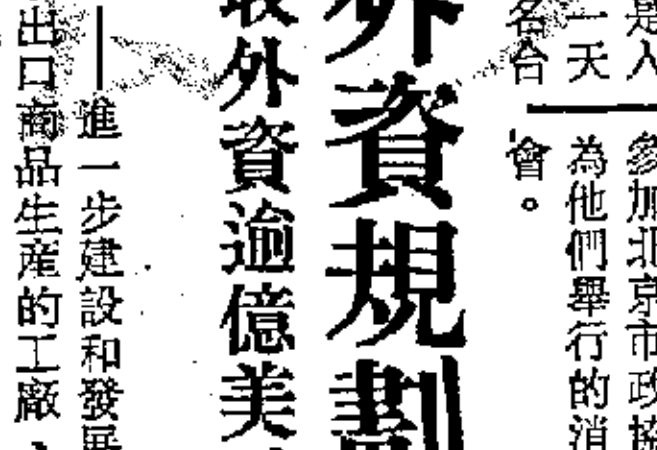 是人
一天
名合
參加北京市政協
為他們舉行的消
會。
外資規劃
取外資逾億美
進一步建設和發展
出口商品生産的工廠，